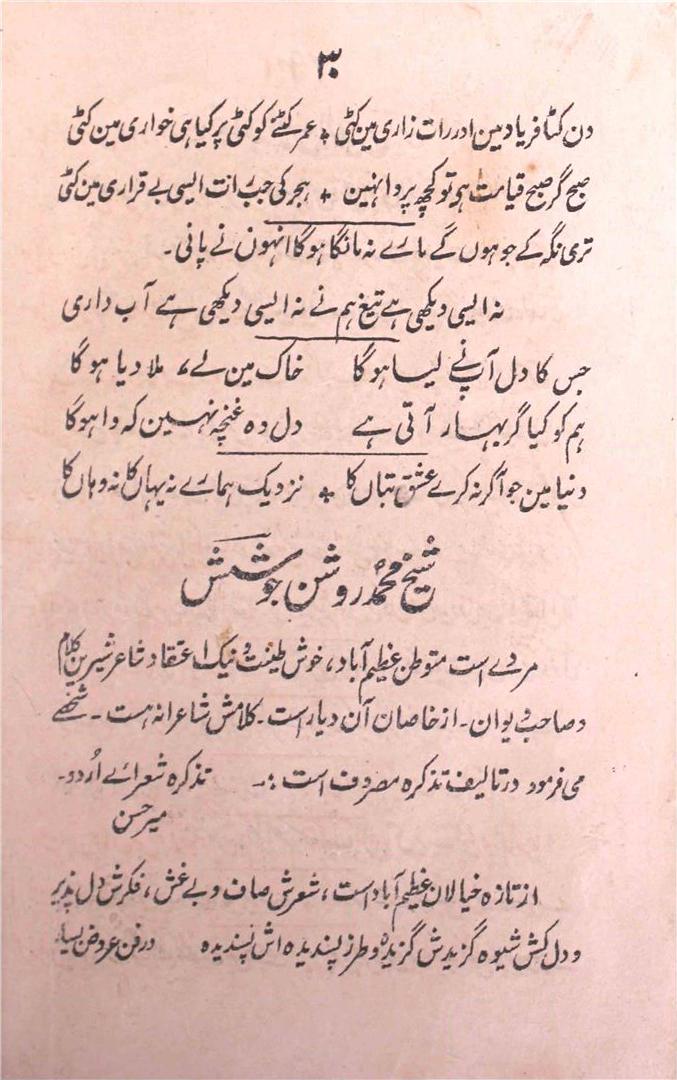 ۳۰
دن کٹا فریاد مین اور رات زاری مین کٹی * عمر کٹنے کو کٹی پر کیا ہی خواری مین کٹی
صبح گر صبح قیامت ہو تو کچھ پروا نہین * ہجر کی جب رات ایسی بے قراری مین کٹی
تری نگہ کے جو ہوں گے مارے نہ مانگا ہوگا انہوں نے پانی۔
نہ ایسی دیکھی ہے تیغ ہم نے نہ ایسی دیکھی ہے آب داری
جس کا دل آپ نے لیا ہوگا خاک مین لے، ملا دیا ہوگا
ہم کو کیا گر بہار آتی ہے دل وہ غنچہ نہین کہ وا ہوگا
دنیا مین جو آکر نہ کرے عشق بتاں کا * نزدیک ہمارے نہ یہاں کا نہ وہاں کا
شیخ محمد روشن جوشش
مردے است متوطن عظیم آباد، خوش طینت و نیک اعتقاد شاعر شیرین کلام
وصاحب دیوان۔ از خاصان آن دیار است۔ کلامش شاعرانہ است۔ شخصے
می فرمود در تالیف تذکرہ مصروف است :۔ تذکرہ شعرائے اُردو۔
میر حسن
از تازہ خیالان عظیم آباد است، شعرش صاف و بے غش، فکرش دل پذیر
و دل کش شیوہ گزیدش گزیدہ و طرز پسندیدہ اش پسندیدہ در فن عروض بسیار